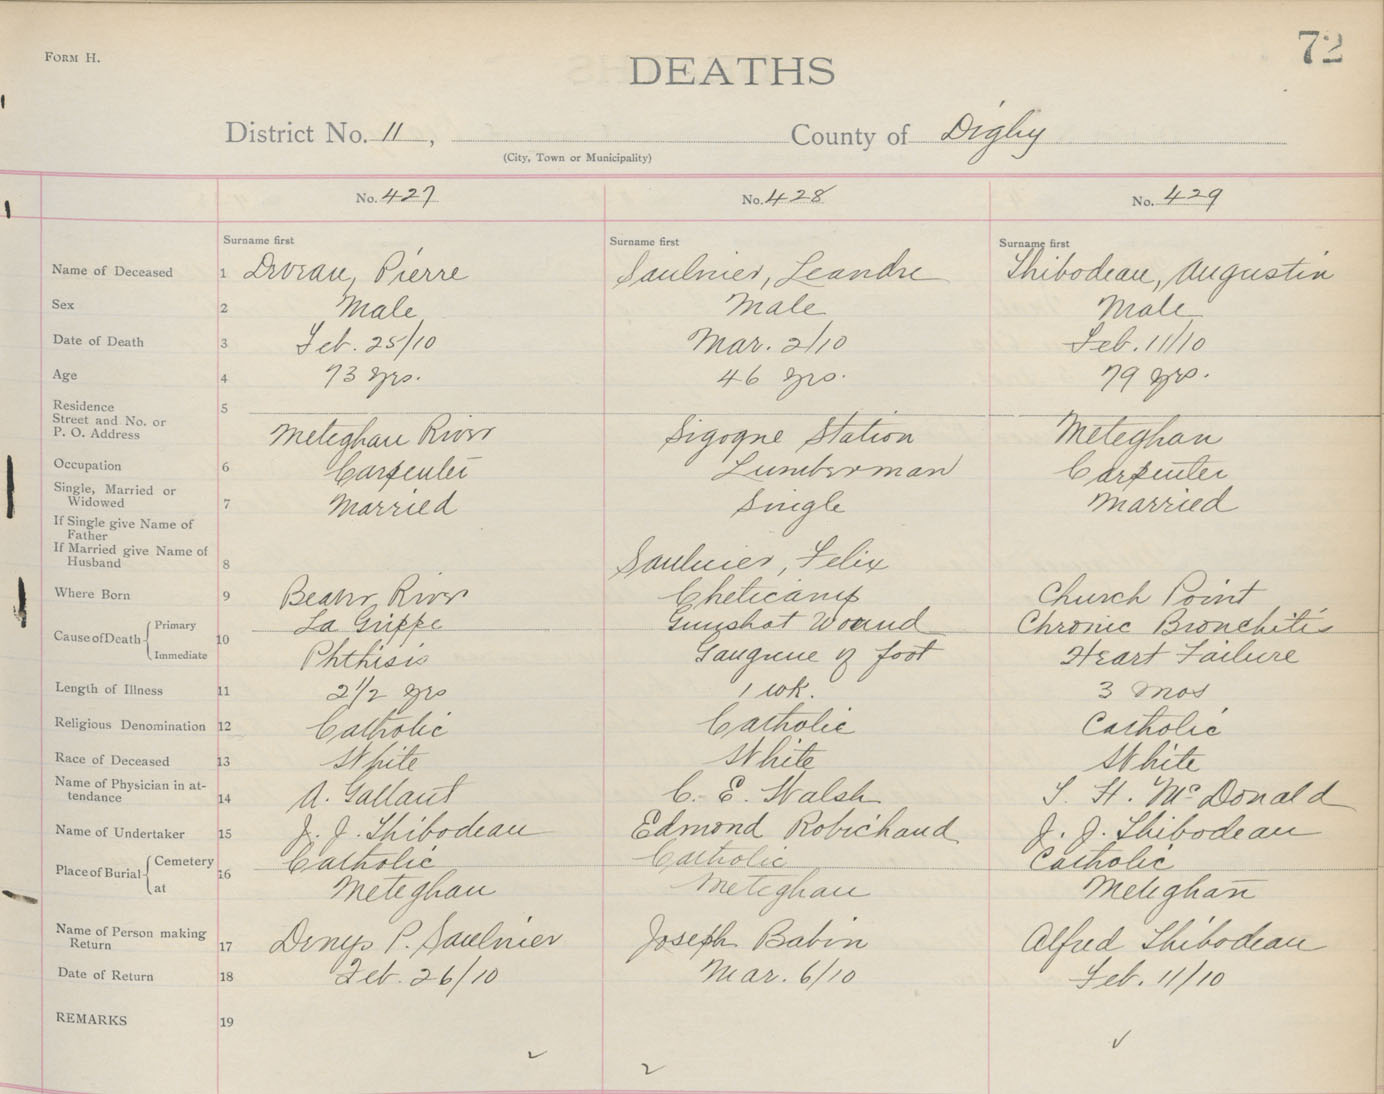 72
FORM H.
DEATHS
District No. 11, County of Digby
(City, Town or Municipality)
No. 427 No. 428 No. 429
Surname first Surname first Surname first
Name of Deceased 1 Deveau, Pierre Saulnier, Leandre Thibodeau, Augustin
Sex 2 Male Male Male
Date of Death 3 Feb. 25/10 Mar. 2/10 Feb. 11/10
Age 4 73 yrs. 46 yrs. 79 yrs.
Residence 5
Street and No. or
P. O. Address Meteghan River Sigogne Station Meteghan
Occupation 6 Carpenter Lumberman Carpenter
Single, Married or
Widowed 7 Married Single Married
If Single give Name of
Father
If Married give Name of
Husband 8 Saulnier, Felix
Where Born 9 Beaver River Cheticamp Church Point
Cause of Death 10 Primary La Grippe Gunshot Wound Chronic Bronchitis
Immediate Phthisis Gangrene of foot Heart Failure
Length of Illness 11 2 1/2 yrs 1 wk. 3 mos
Religious Denomination 12 Catholic Catholic Catholic
Race of Deceased 13 White White White
Name of Physician in at-
tendance 14 A. Gallant C. E. Walsh T. H. McDonald
Name of Undertaker 15 J. J. Thibodeau Edmond Robichaud J. J. Thibodeau
Place of Burial 16 Cemetery Catholic Catholic Catholic
at Meteghan Meteghan Meteghan
Name of Person making
Return 17 Denys P. Saulnier Joseph Babin Alfred Thibodeau
Date of Return 18 Feb. 26/10 Mar. 6/10 Feb. 11/10
REMARKS 19